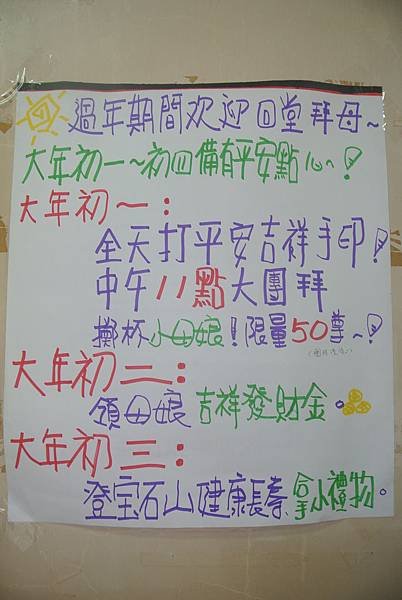 週年期間欢迎回堂拜母~
大年初一~初四備有平安點心~!
大年初一:
全天打平安吉祥手印!
中午11點大團拜
擲杯小母娘!限量50尊~!
大年初二:
領母娘吉祥發財金。
大年初三:
登宝石山健康長壽,拿小禮物。